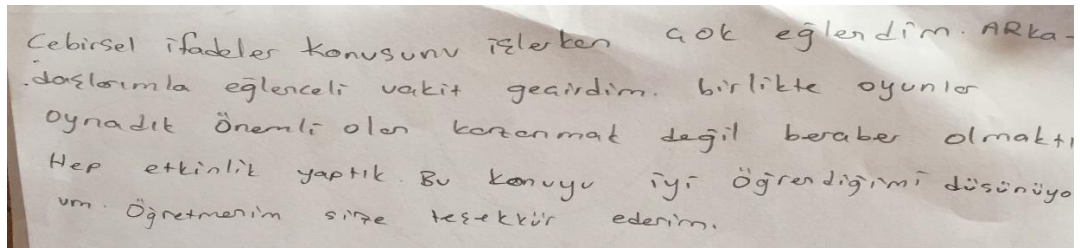 Cebirsel ifadeler konusunu işlerken çok eğlendim. ARka-
daşlarımla eğlenceli vakit geçirdim. birlikte oyunlar
oynadık önemli olan kazanmak değil beraber olmaktı
Hep etkinlik yaptık. Bu konuyu iyi öğrendiğimi düşünüyo
um. Öğretmenim size teşekkür ederim.